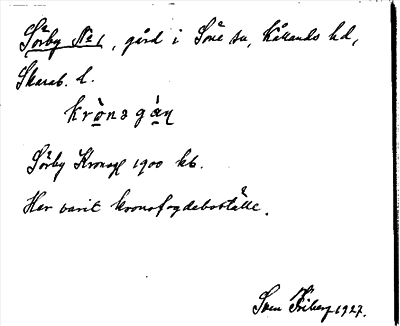 Sörby No 1, gård i Söne sn, Kållands hd,
Skarab. l.
krònsgán
Sörby Kronog 1900 kb.
Har varit kronofogdeboställe.
Sven Friberg 1927.